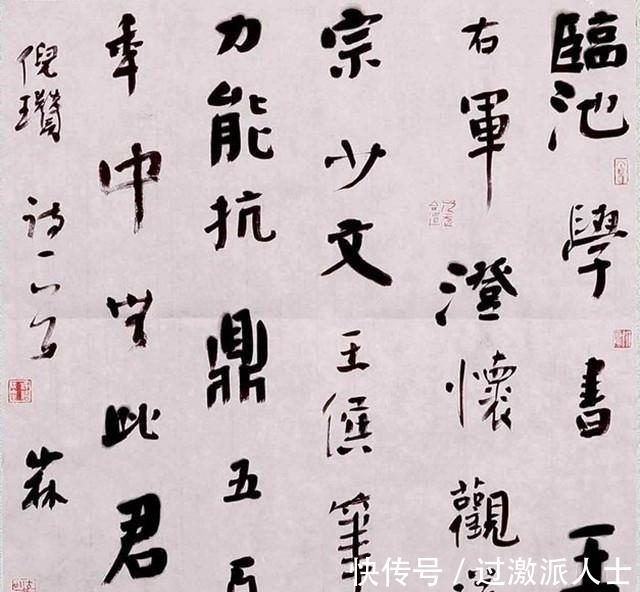 臨池學書王
右軍澄懷觀
宗少文王筆
力能抗鼎五
年中無此君
倪瓚詩一
快传号 / 过激派人士